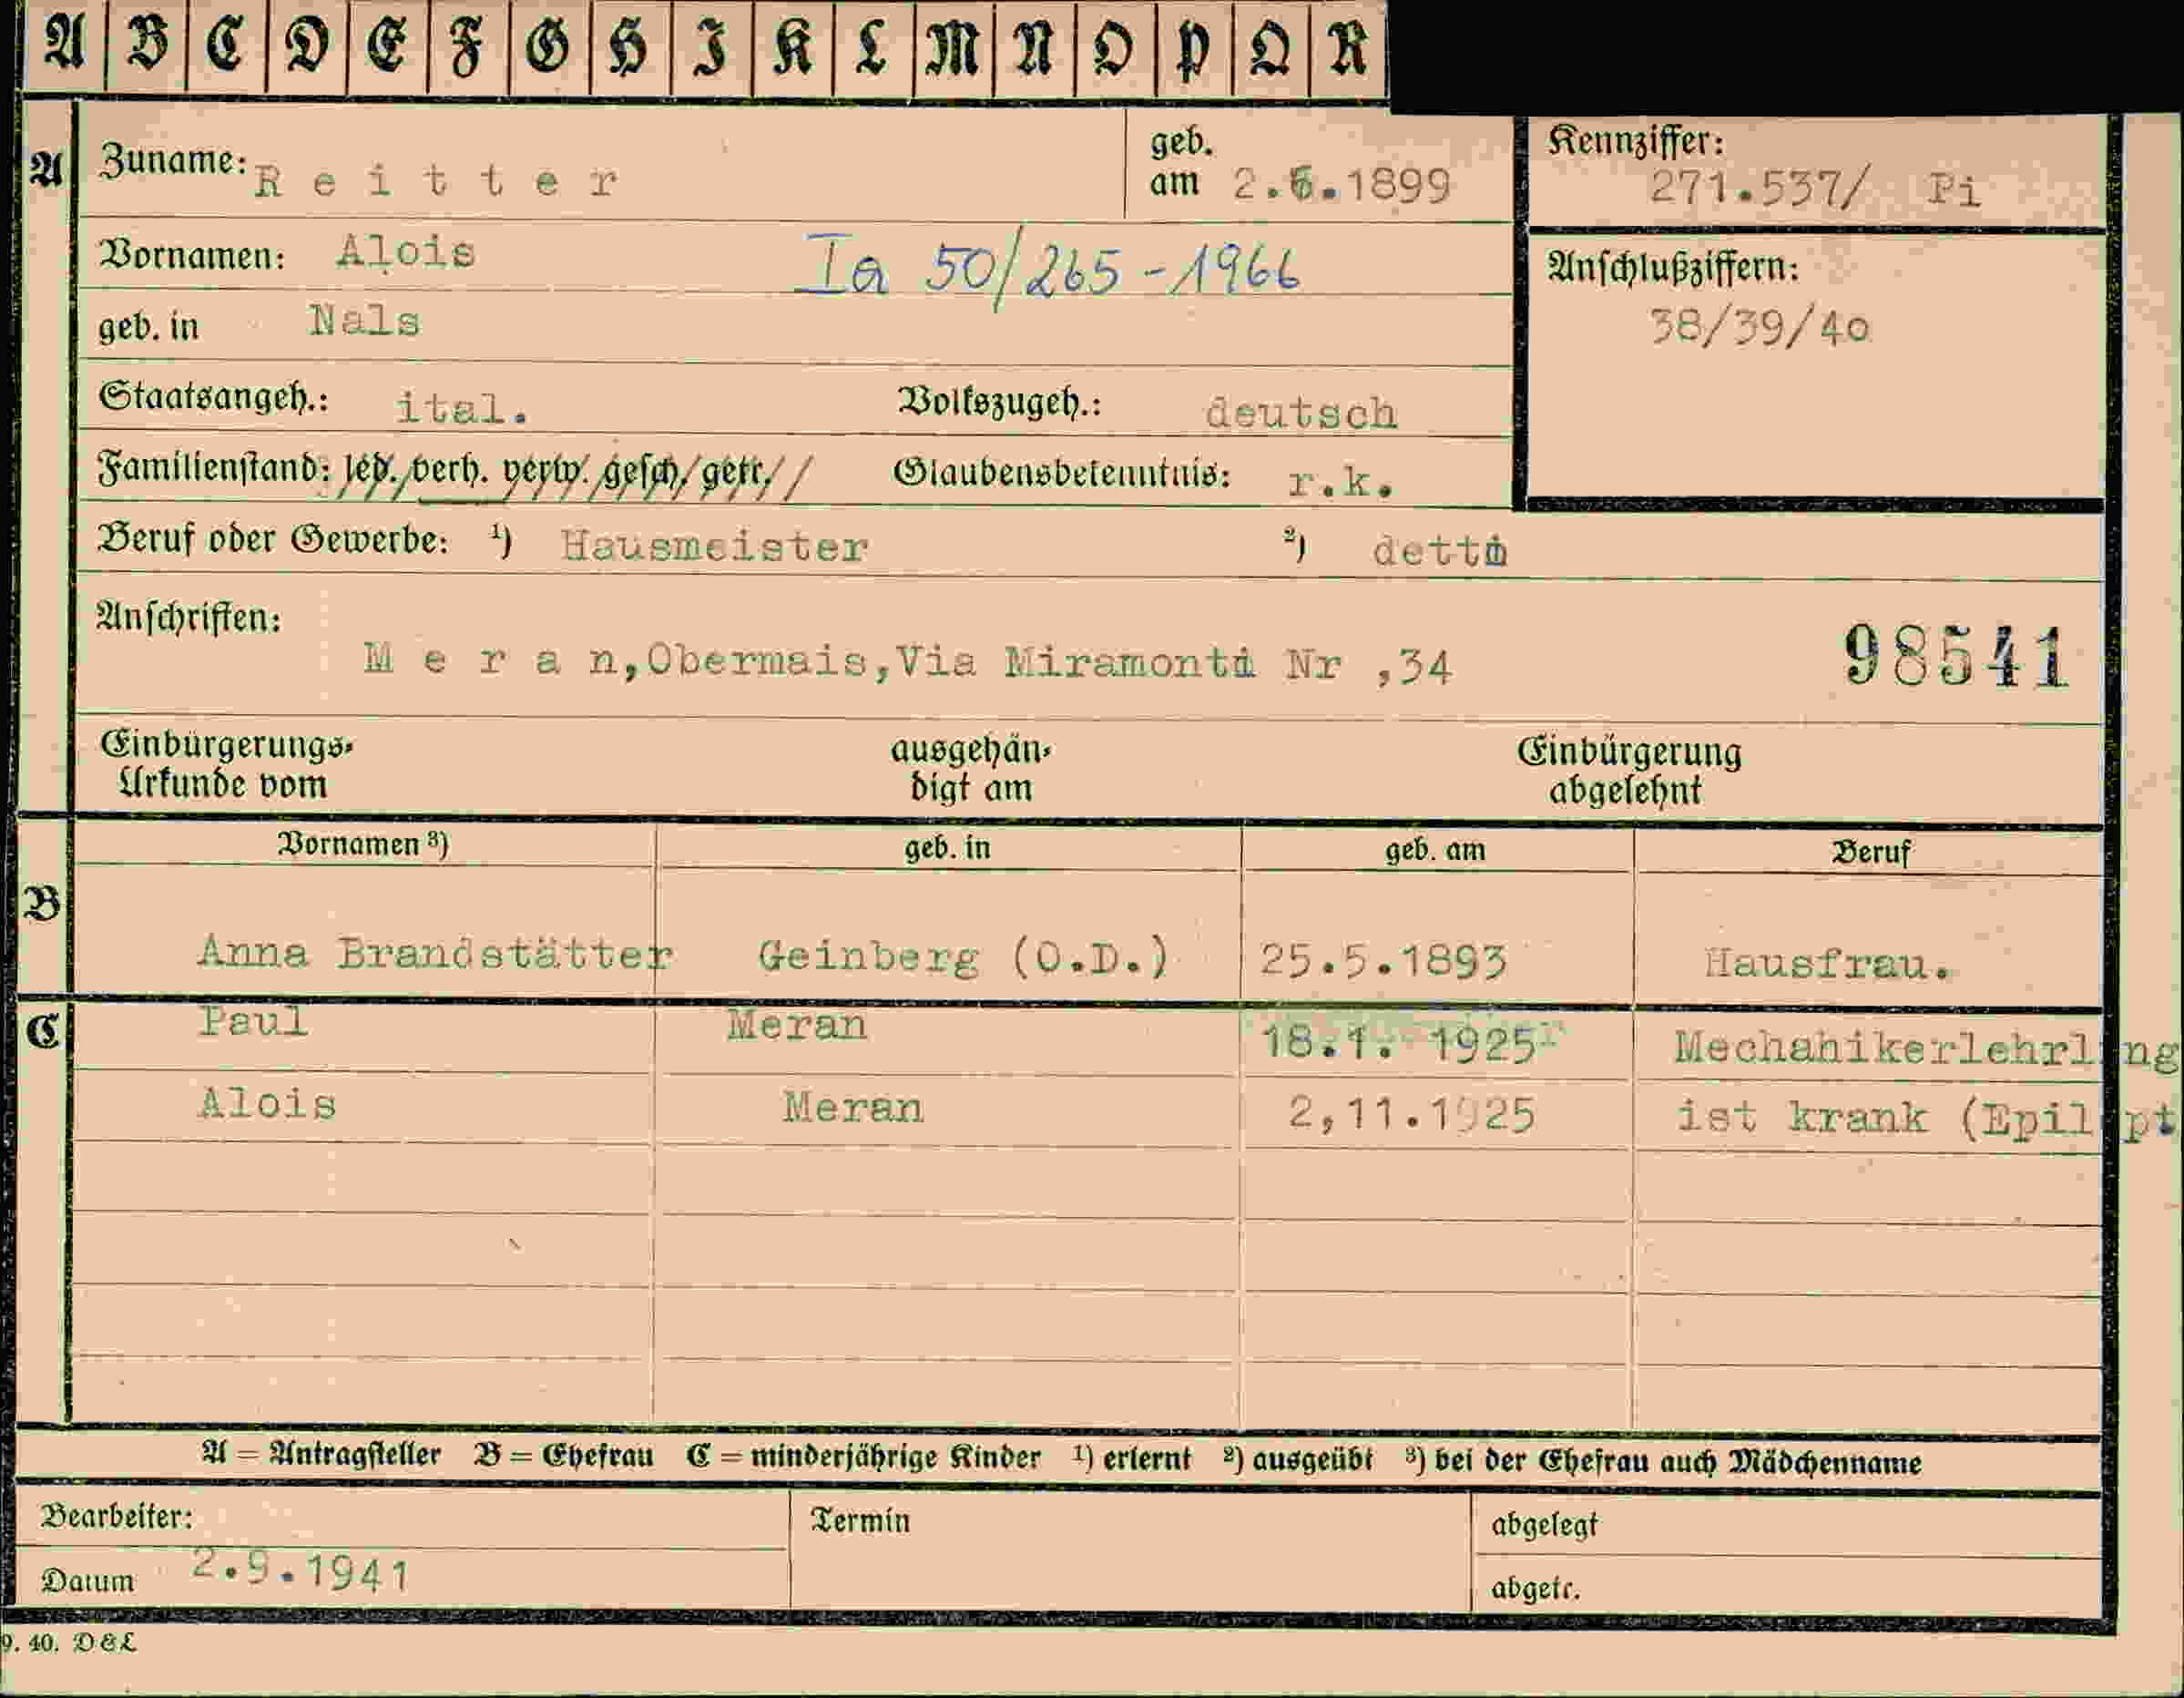 A B C D E F G H I K L M N O P Q R
A Zuname: Reitter geb. am 2.6.1899 Kennziffer: 271.537/ Pi
Vornamen: Alois Ia 50/265-1966 Anschlußziffern:
geb. in Nals 38/39/40
Staatsangeh.: ital. Volkszugeh.: deutsch
Familienstand: led. verh. verw. gesch. getr. Glaubensbekenntnis: r.k.
Beruf oder Gewerbe: ¹) Hausmeister ²) detto
Anschriften:
Meran,Obermais,Via Miramonti Nr ,34 98541
Einbürgerungs-Urkunde vom ausgehändigt am Einbürgerung abgelehnt
Vornamen ³) geb. in geb. am Beruf
B Anna Brandstätter Geinberg (O.D.) 25.5.1893 Hausfrau.
C Paul Meran 18.1. 1925 Mechanikerlehrling
Alois Meran 2,11.1925 ist krank (Epilept
A = Antragsteller B = Ehefrau C = minderjährige Kinder ¹) erlernt ²) ausgeübt ³) bei der Ehefrau auch Mädchenname
Bearbeiter: Termin abgelegt
Datum 2.9.1941 abgetr.
9. 40. D&L